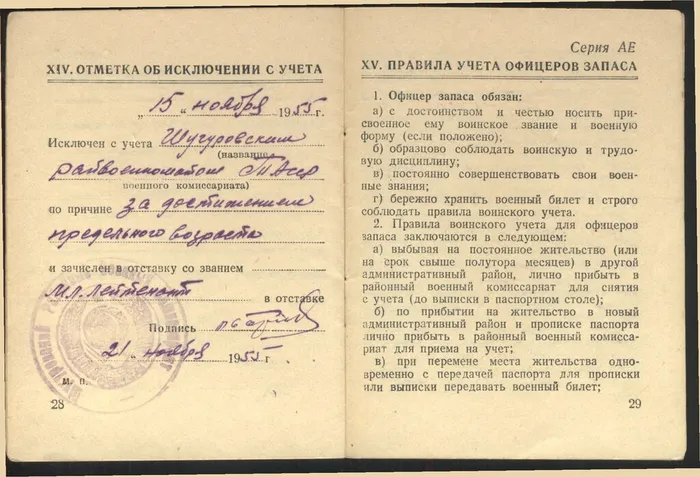 XIV. ОТМЕТКА ОБ ИСКЛЮЧЕНИИ С УЧЕТА
„ 15 “ ноября 1955 г.
Исключен с учета Шугуровским
(название
райвоенкоматом ТАССР
военного комиссариата)
по причине за достижением
предельного возраста
и зачислен в отставку со званием
мл. лейтенант в отставке
Подпись
21 „ ноября 1955 г.
М. П.
28
Серия АЕ
XV. ПРАВИЛА УЧЕТА ОФИЦЕРОВ ЗАПАСА
1. Офицер запаса обязан:
а) с достоинством и честью носить при-
своенное ему воинское звание и военную
форму (если положено);
б) образцово соблюдать воинскую и трудо-
вую дисциплину;
в) постоянно совершенствовать свои воен-
ные знания;
г) бережно хранить военный билет и строго
соблюдать правила воинского учета.
2. Правила воинского учета для офицеров
запаса заключаются в следующем:
а) выбывая на постоянное жительство (или
на срок свыше полутора месяцев) в другой
административный район, лично прибыть в
районный военный комиссариат для снятия
с учета (до выписки в паспортном столе);
б) по прибытии на жительство в новый
административный район и прописке паспорта
лично прибыть в районный военный комисса-
риат для приема на учет;
в) при перемене места жительства одно-
временно с передачей паспорта для прописки
или выписки передавать военный билет;
29